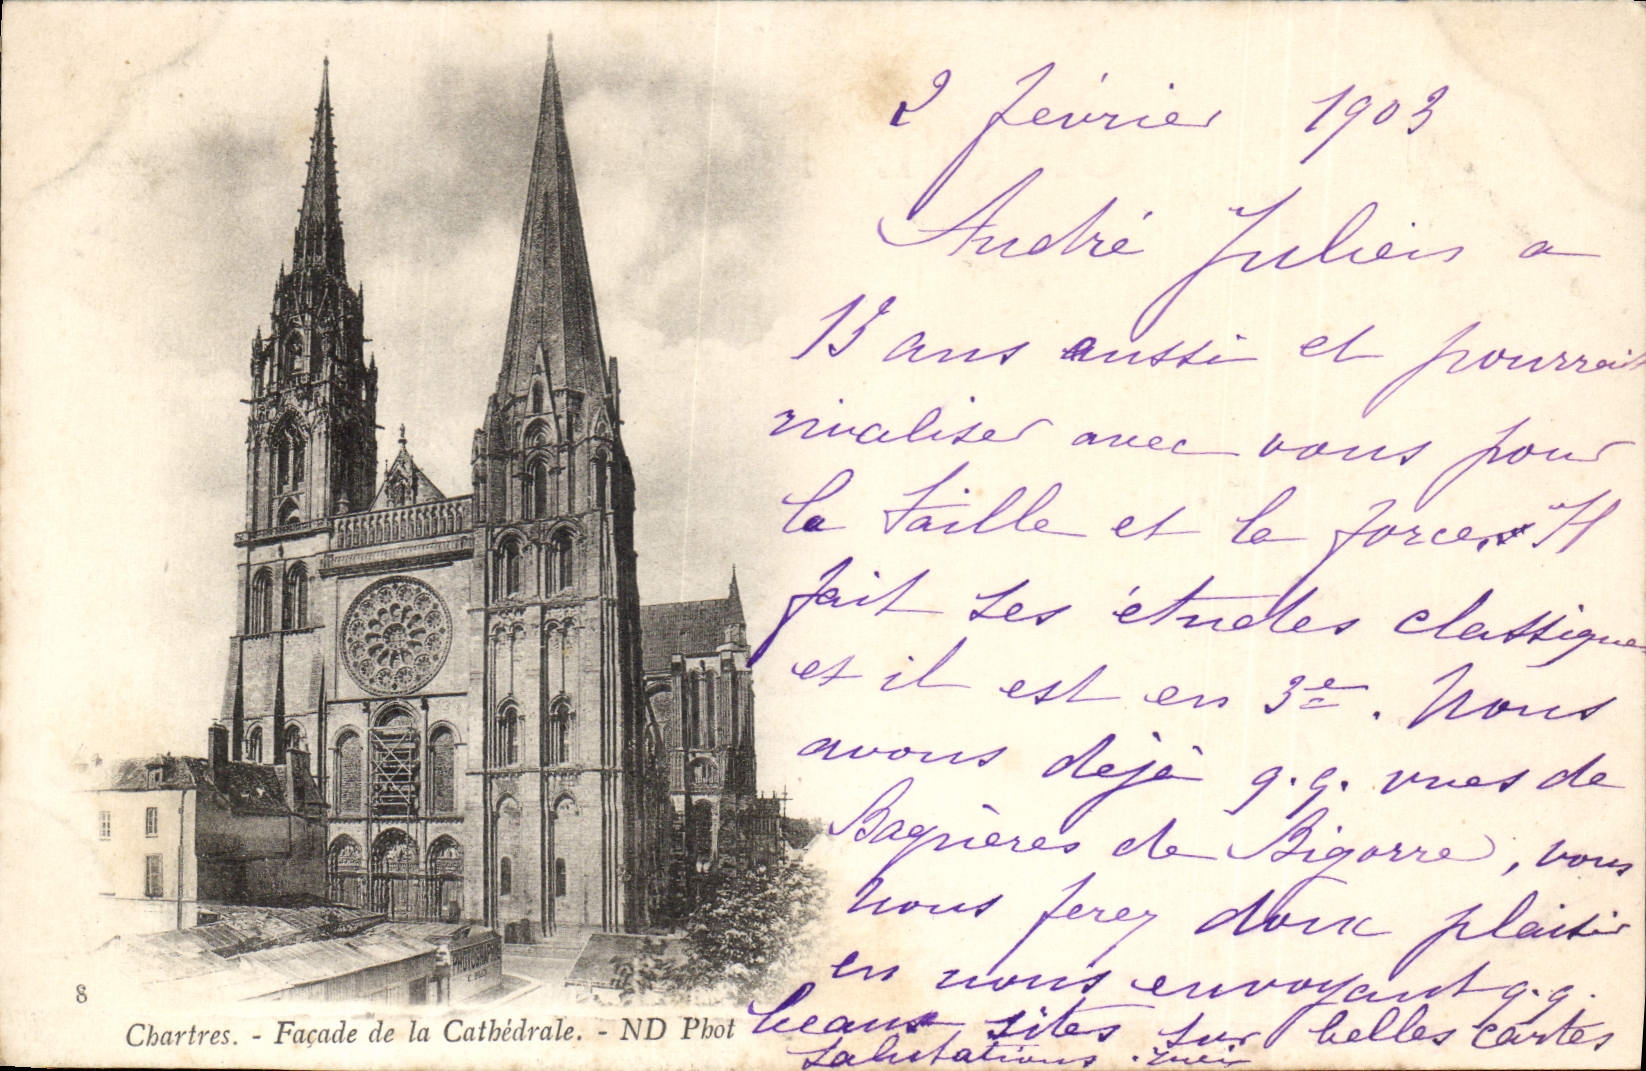 2 février 1903
André Julien a
13 ans aussi et pourrait
rivaliser avec vous pour
la taille et la force. Il
fait ses études classiques
et il est en 3e. Nous
avons déjà q.q. vues de
Bagnères de Bigorre, vous
nous ferez donc plaisir
en nous envoyant q.q.
beaux sites sur belles cartes
Salutations
PHOTOGRAPHIE
8
Chartres. - Façade de la Cathédrale. - ND Phot